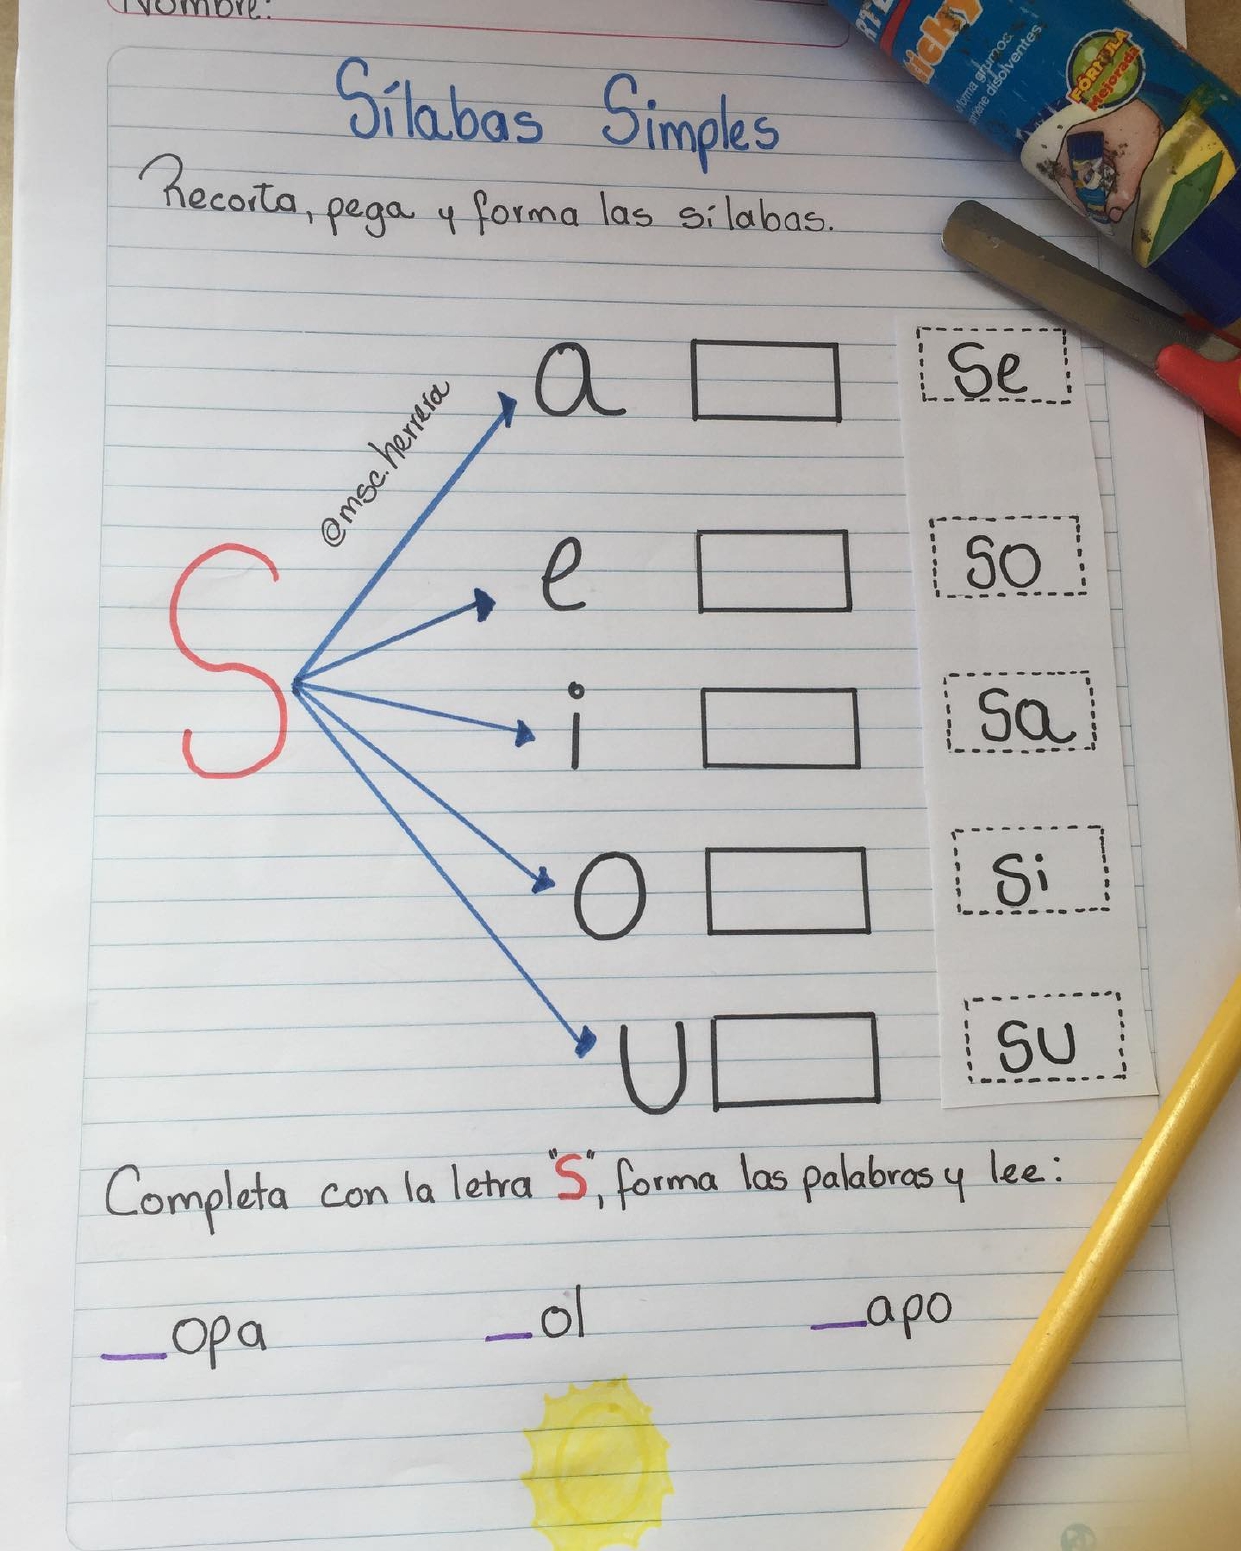 Nombre:
Sílabas Simples
Recorta, pega y forma las sílabas.
@msc.herrera
S
a
Se
e
so
i
sa
o
si
u
su
Completa con la letra "S", forma las palabras y lee:
__opa __ol __apo
FÓRMULA
Mejorada